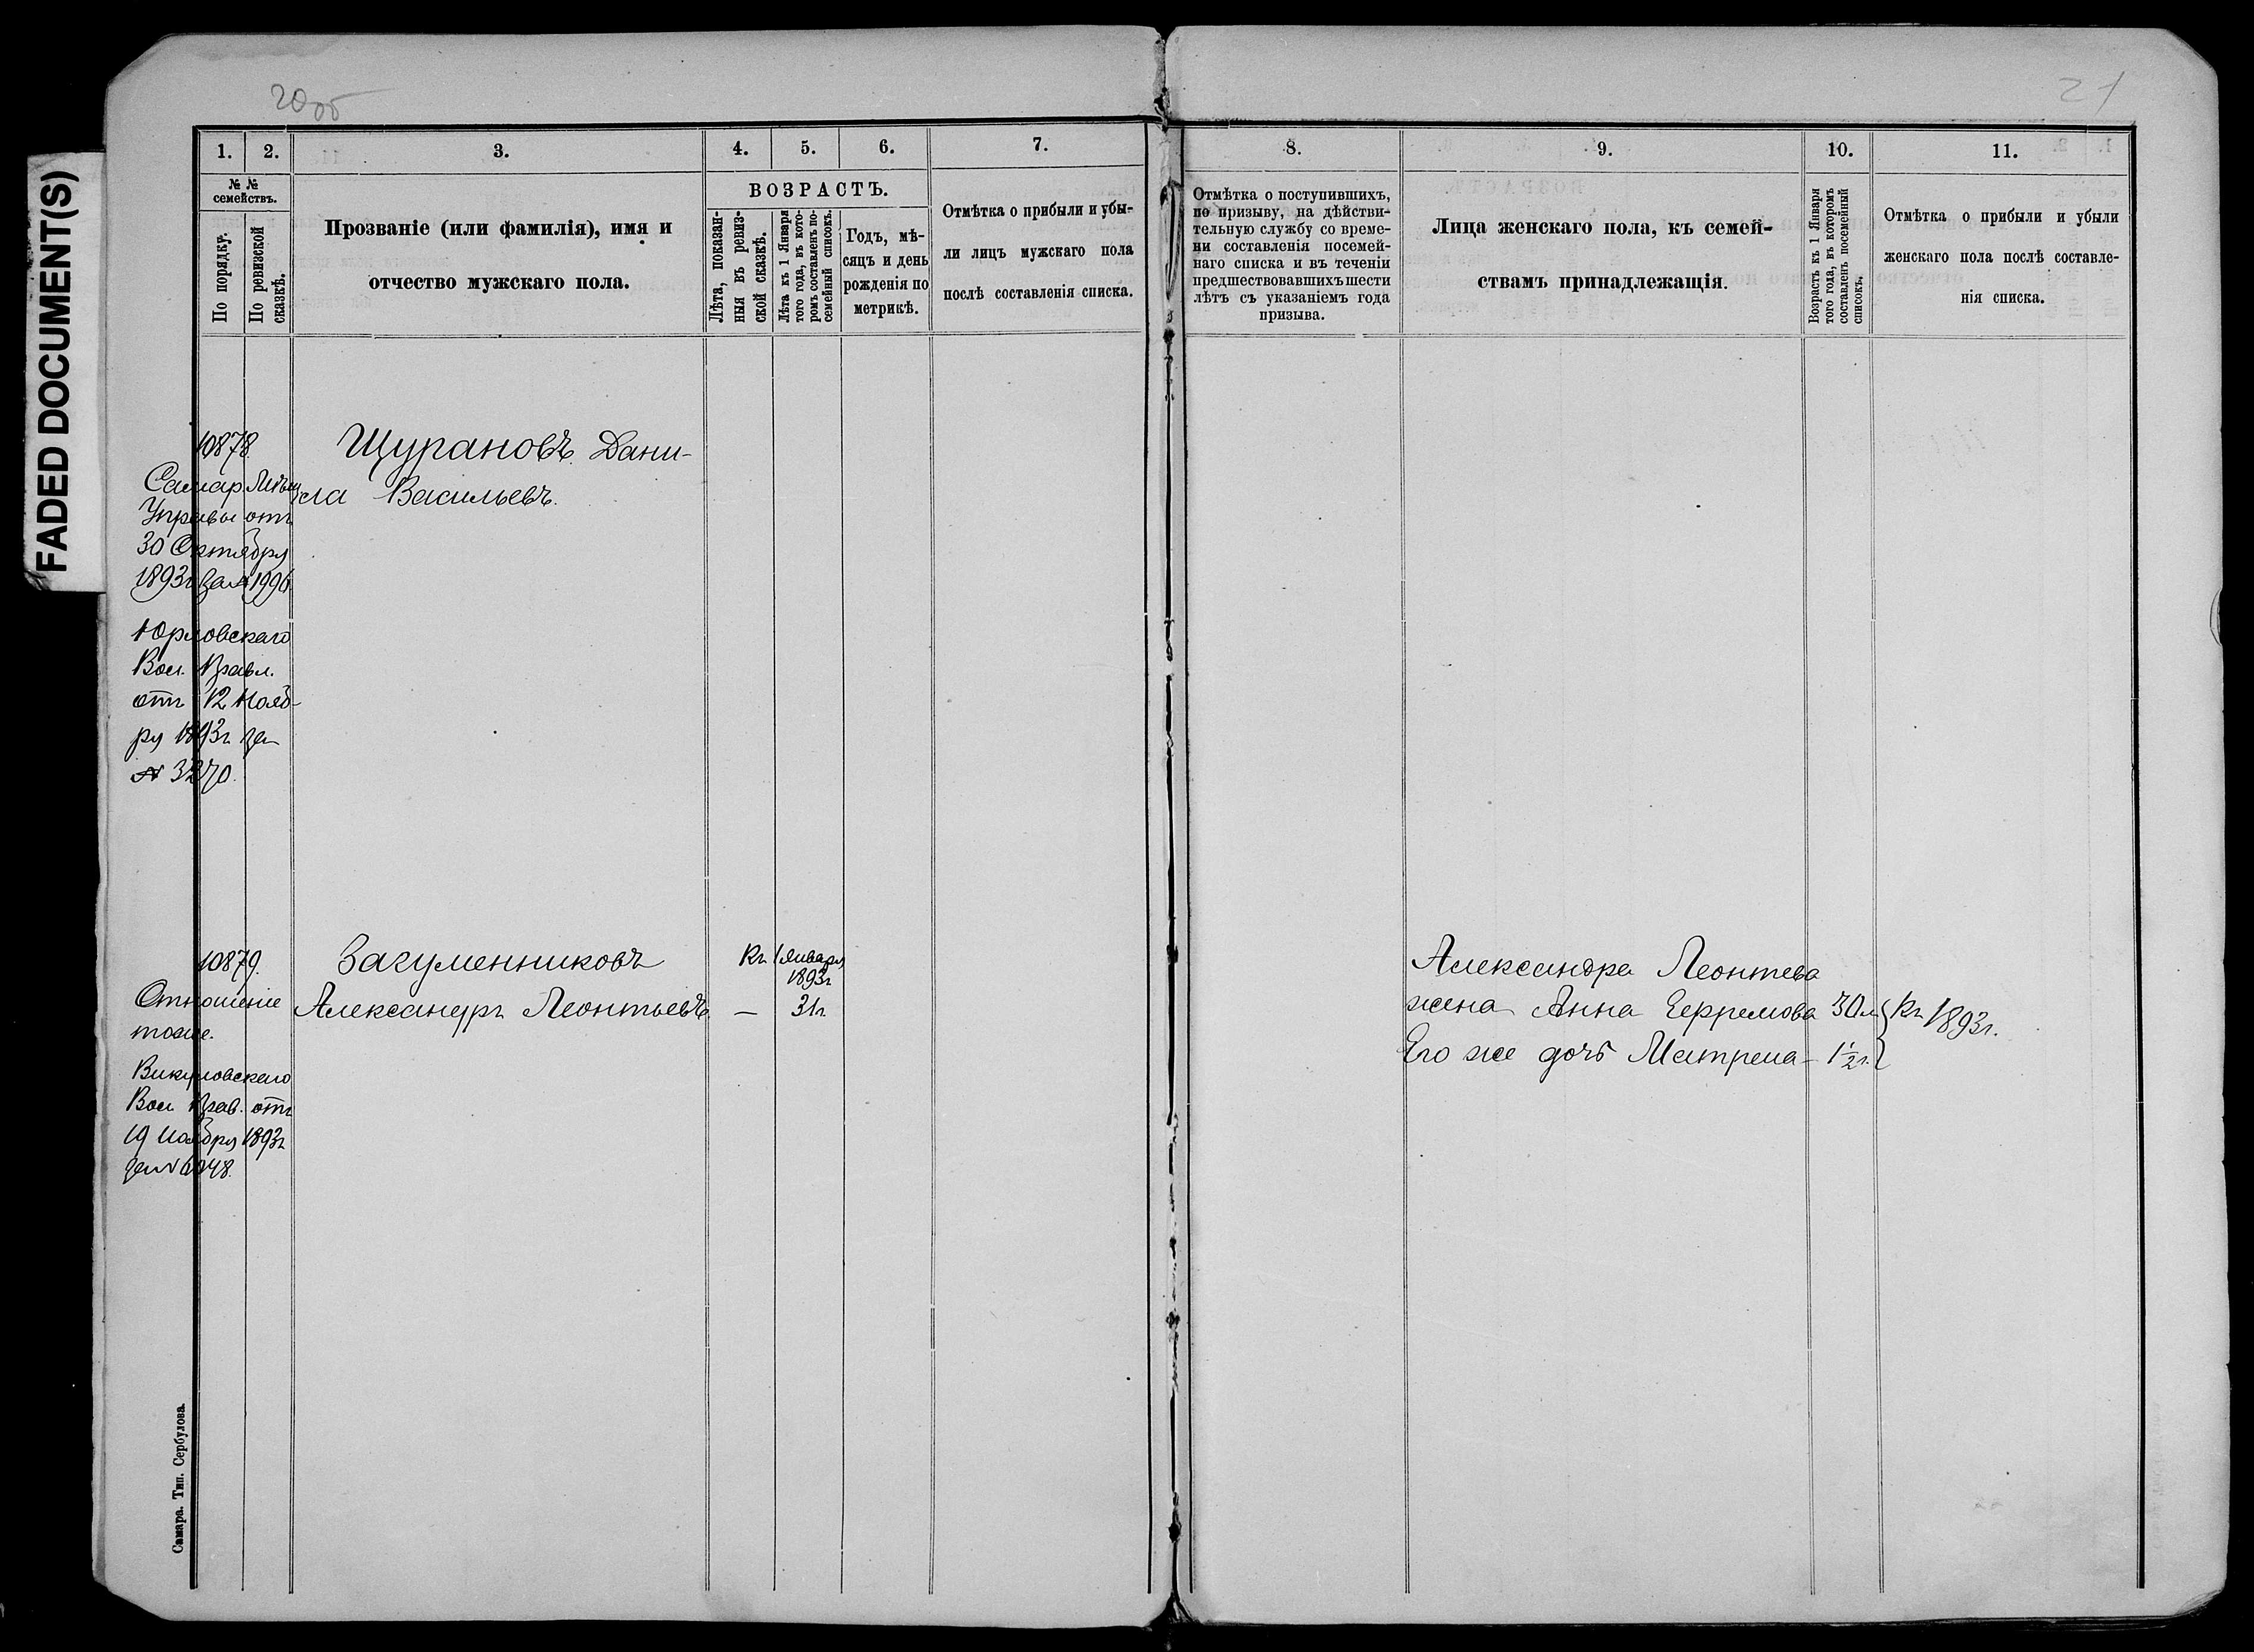 FADED DOCUMENT(S)
20об
21
1. 2. 3. 4. 5. 6. 7.
№ №
семействъ.
По порядку.
По ревизской
сказкѣ.
Прозваніе (или фамилія), имя и
отчество мужскаго пола.
ВОЗРАСТЪ.
Лѣта, показан-
ныя въ ревиз-
ской сказкѣ.
Лѣта къ 1 Января
того года, въ кото-
ромъ составленъ по-
семейный списокъ.
Годъ, мѣ-
сяцъ и день
рожденія по
метрикѣ.
Отмѣтка о прибыли и убы-
ли лицъ мужскаго пола
послѣ составленія списка.
10878.
Самар. Мѣщ.
Управы отъ
30 Октября
1893г за № 1996
Юрловскаго
Вол. Правл.
отъ 12 Нояб-
ря 1893г за
№ 3270.
Щурановъ Дани-
ла Васильевъ.
10879.
Отношеніе
тоже.
Викуловскаго
Вол. Прав. отъ
19 Ноября 1893г
за № 6048.
Загуменниковъ
Къ 1 Января
1893г
Александръ Леонтьевъ. — 31г
Самара. Тип. Сербулова.
8. 9. 10. 11.
Отмѣтка о поступившихъ,
по призыву, на дѣйстви-
тельную службу со време-
ни составленія посемей-
наго списка и въ теченіи
предшествовавшихъ шести
лѣтъ съ указаніемъ года
призыва.
Лица женскаго пола, къ семей-
ствамъ принадлежащія.
Возрастъ къ 1 Января
того года, въ которомъ
составленъ посемейный
списокъ.
Отмѣтка о прибыли и убыли
женскаго пола послѣ составле-
нія списка.
Александра Леонтева
жена Анна Ефремова 30л Къ 1893г.
Его же дочь Матрена - 1½г.